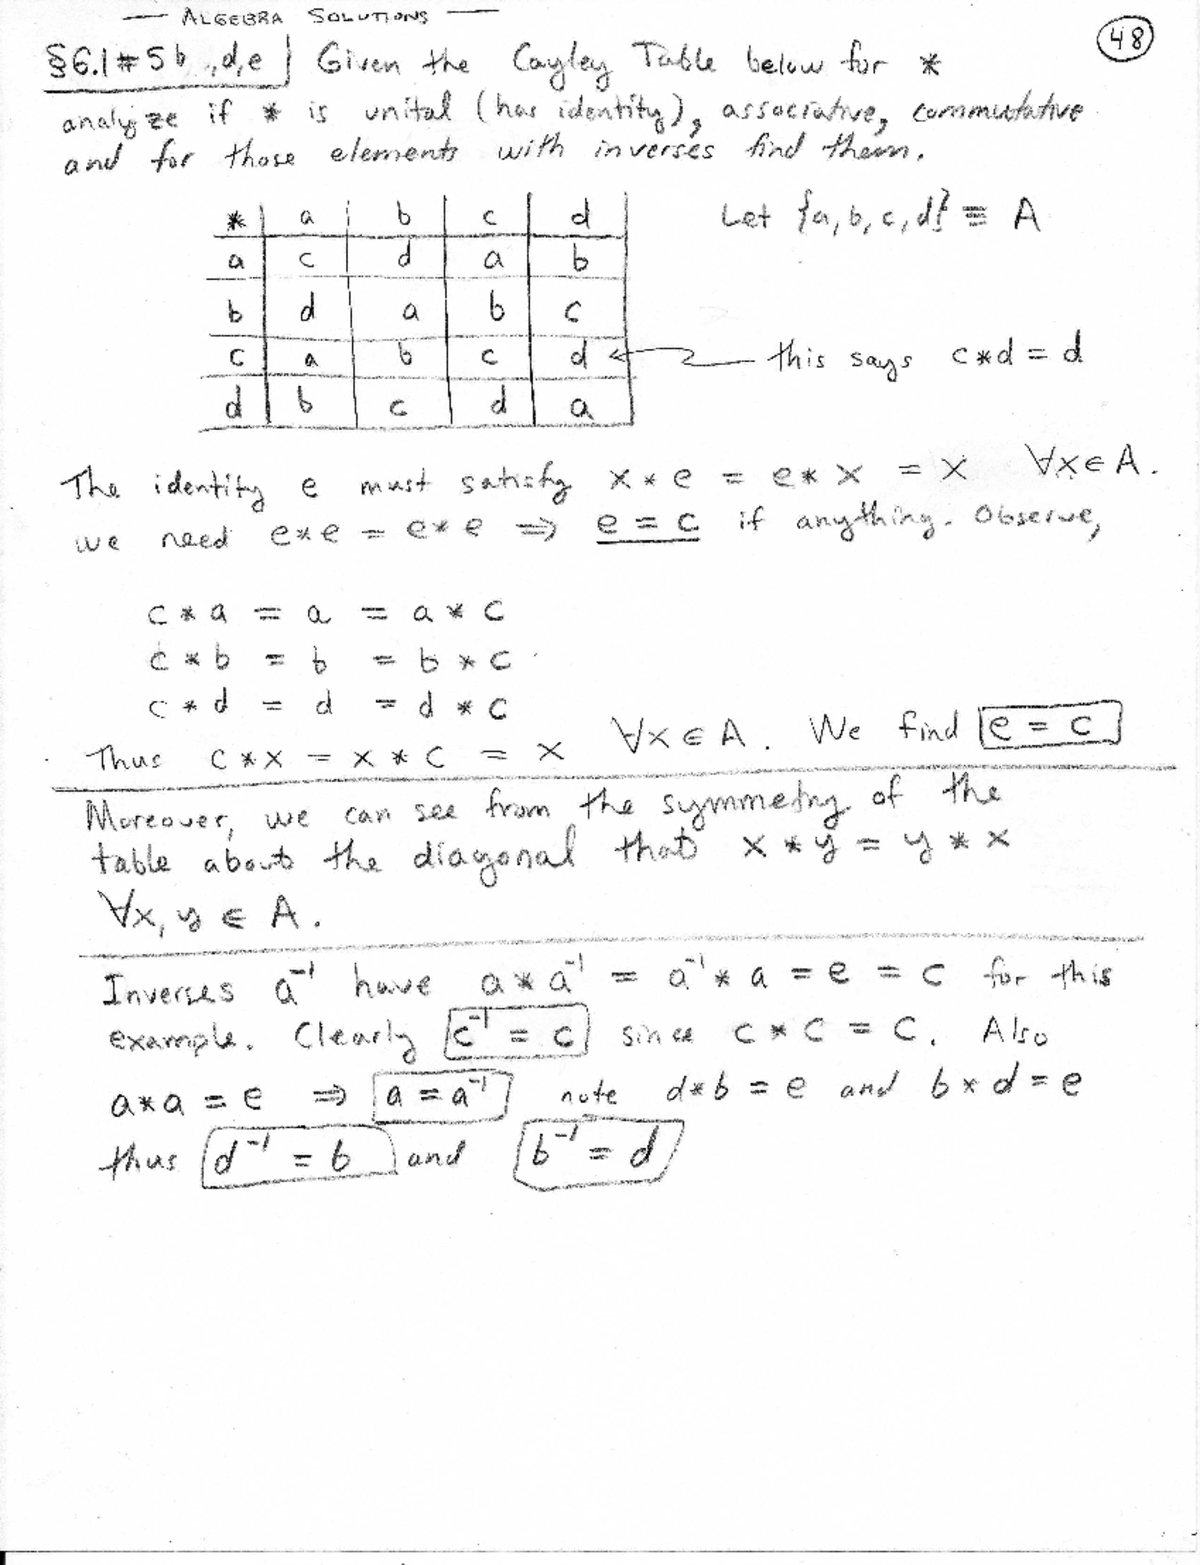 — ALGEBRA SOLUTIONS —
48
§6.1 # 5b, d, e Given the Cayley Table below for *
analyze if * is unital (has identity), associative, commutative
and for those elements with inverses find them.
* a b c d
a c d a b
b d a b c
c a b c d
d b c d a
Let {a, b, c, d} ≡ A
this says c * d = d
The identity e must satisfy x * e = e * x = x ∀x ∈ A.
we need e * e = e * e ⇒ e = c if anything. Observe,
c * a = a = a * c
c * b = b = b * c
c * d = d = d * c
Thus c * x = x * c = x ∀x ∈ A. We find e = c
Moreover, we can see from the symmetry of the
table about the diagonal that x * y = y * x
∀x, y ∈ A.
Inverses a⁻¹ have a * a⁻¹ = a⁻¹ * a = e = c for this
example. Clearly c⁻¹ = c since c * c = c. Also
a * a = e ⇒ a = a⁻¹ note d * b = e and b * d = e
thus d⁻¹ = b and b⁻¹ = d